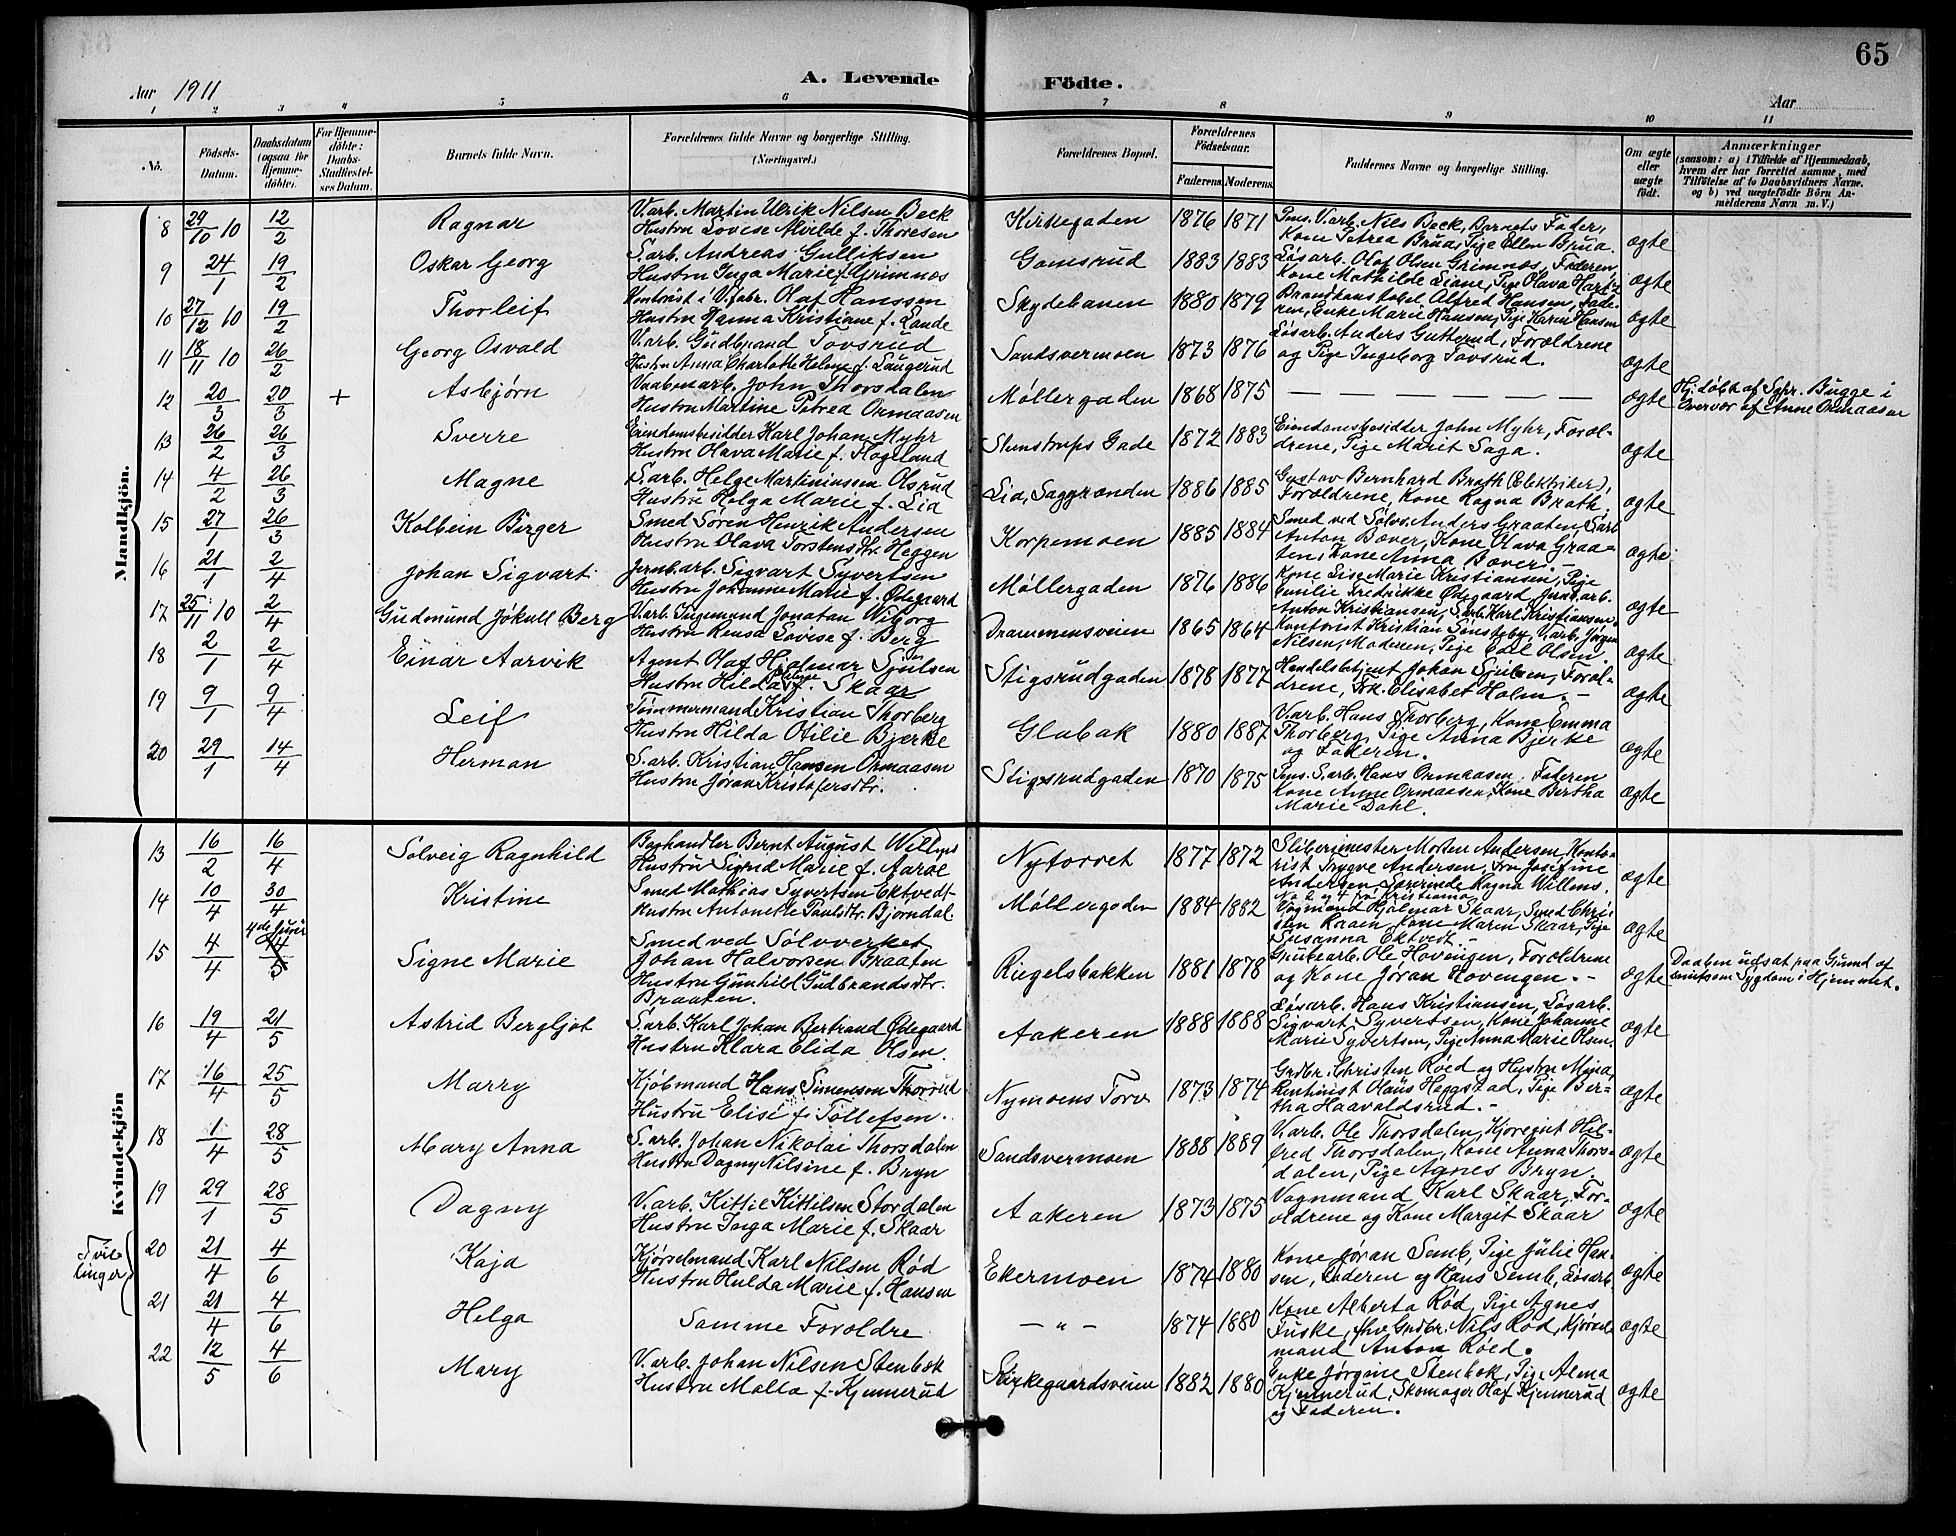 65
Aar 1911
A. Levende Födte.
Aar
1 2 3 4 5 6 7 8 9 10 11
No.
Födsels-Datum.
Daabsdatum (ogsaa for Hjemmedöbte).
For Hjemmedöbte: Daabs-Stadfæstelses Datum.
Barnets fulde Navn.
Forældrenes fulde Navne og borgerlige Stilling. (Næringsvei.)
Forældrenes Bopæl.
Forældrenes Födselsaar.
Faderens Moderens
Faddernes Navne og borgerlige Stilling.
Om ægte eller uægte födt.
Anmærkninger (saasom: a) i Tilfælde af Hjemmedaab, hvem der har forrettet samme, med Tilföielse af to Daabsvidners Navne, og b) ved uægtefödte Börn Anmelderens Navn m. V.)
Mandkjön.
8 29/10 10 12/2 Ragnar
V.arb. Martin Ulrik Nilsen Beck
Hustru Lovise Mvilde f. Thoresen
Kirkegaden 1876 1871
Pens. V.arb. Nils Beck, Barnets Fader,
Kone Petrea Brua, Pige Ellen Brua.
ægte
9 24/1 19/2 Oskar Georg
S.arb. Andreas Gulliksen
Hustru Inga Marie f. Grimnæs
Gomsrud 1883 1883
Løsarb. Olaf Olsen Grimnæs, Faderen,
Kone Mathilde Liane, Pige Olava
ægte
10 27/12 10 19/2 Thorleif
Kontorist i V.fabr. Olaf Hanssen
Hustru Hanna Kristiane f. Lande
Skydebanen 1880 1879
Brandkonstabel Alfred Hansen, Fade-
ren, Enke Marie Hansen, Pige Karen Hansen
ægte
11 18/11 10 26/2 Georg Osvald
V.arb. Gudbrand Tovsrud
Hustru Anna Charlotte Helene f. Laugerud
Sandsvermoen 1873 1876
Løsarb. Anders Gutterud, Forældrene
og Pige Ingeborg Tovsrud.
ægte
12 20/3 20/3 + Asbjørn
Vaabenarb. John Thorsdalen
Hustru Martine Petrea Ormaasen
Møllergaden 1868 1875
— — — — — —
ægte
Hj.døbt af Sgpr. Bugge i
Overvær af Anne Ormaasen
13 26/2 26/3 Sverre
Eiendomsbesidder Karl Johan Myhr
Hustru Olava Marie f. Fogeland
Stenstrups Gade 1872 1883
Eiendomsbesidder John Myhr, Foræl-
drene, Pige Marit Saga.
ægte
14 4/2 26/3 Magne
S.arb. Helge Martiniussen Olsrud
Hustru Helga Marie f. Lia
Lia, Saggrænden 1886 1885
Gustav Bernhard Brath (Elektriker),
Forældrene, Kone Ragna Brath.
ægte
15 27/1 26/3 Kolbein Birger
Smed Søren Henrik Andersen
Hustru Olava Torstensdtr. Heggen
Korpemoen 1885 1884
Smed ved Sølvv. Anders Graaten, S.arb.
Anton Bæver, Kone Olava Graa-
ten, Kone Anna Bæver. –
ægte
16 21/1 2/4 Johan Sigvart
Jernb.arb. Sigvart Syvertsen
Hustru Johanne Marie f. Ødegaard
Møllergaden 1876 1886
Kone Lise Marie Kristiansen, Pige
Emilie Fredrikke Ødegaard, Jernb.arb.
Anton Kristiansen, S.arb. Karl Kristiansen.
ægte
17 25/11 10 2/4 Gudmund Jøkull Berg
V.arb. Ingemund Jonatan Wiborg
Hustru Rensa Lovise f. Berg
Drammensveien 1865 1864
Kontorist Kristian Sinsteby, V.arb. Jørgen
Nilsen, Moderen, Pige Olsen.
ægte
18 2/1 2/4 Einar Aarvik
Agent Olaf Hjalmar Sjulsen
Hustru Hilda f. Skaar
Stigsrudgaden 1878 1877
Handelsbetjent Johan Sjulsen, Foræl-
drene, Frk. Elisabet Holm. –
ægte
19 9/1 9/4 Leif
Tømmermand Kristian Thorberg
Hustru Hilda Otilie Bjerke
Glabak 1880 1887
V.arb. Hans Thorberg, Kone Emma
Thorberg, Pige Anna Bjerke
og Faderen.
ægte
20 29/1 14/4 Herman
S.arb. Kristian Hansen Ormaasen
Hustru Jøran Kristofersdtr.
Stigsrudgaden 1870 1875
Pens. S.arb. Hans Ormaasen, Faderen
Kone Anne Ormaasen, Kone Bertha
Marie Dahl.
ægte
Kvindekjön
13 16/2 16/4 Solveig Ragnhild
Boghandler Bernt August Willums
Hustru Sigrid Marie f. Aaroe
Nytorvet 1877 1872
Slibermester Morten Andersen, Konto-
rist Trygve Andersen, Fru Josefine
Andersen, Lærerinde Ragna Willums.
No 2 og 4 fra Kristiania
ægte
14 10/4 30/4 Kristine
Smed Mathias Syvertsen Ektvedt
Hustru Antonette Paulsdtr. Bjørndal.
Møllergaden 1884 1882
Vognmand Hjalmar Skaar, Smed Chri-
sten Raaen, Kone Maren Skaar, Pige
Susanna Ektvedt. –
ægte
15 4/4 4de Juni 14/5 Signe Marie
Smed ved Sølvverket
Johan Halvorsen Braaten
Hustru Gunhild Gudbrandsdtr.
Braaten.
Riegelsbakken 1881 1878
Grubearb. Ole Hovengen, Forældrene
og Kone Jøran Hovengen. –
ægte
Daaben udsat paa Grund af
smitsom Sygdom i Hjemmet.
16 19/4 21/5 Astrid Bergljot
S.arb. Karl Johan Bertrand Ødegaard
Hustru Klara Elida Olsen.
Aakeren 1888 1888
Løsarb. Hans Kristiansen, Løsarb.
Sigvart Syvertsen, Kone Johanne
Marie Syvertsen, Pige Anna Marie Olsen.
ægte
17 16/4 25/5 Marry
Kjøbmand Hans Simensen Thorrud
Hustru Elise f. Tollefsen.
Nymoens Torv 1873 1874
Grdbr. Christen Røed og Hustru Mina,
Kontorist Olaus Heggstad, Pige Ber-
tha Haavaldsrud. –
ægte
18 1/4 28/5 Mary Anna
S.arb. Johan Nikolai Thorsdalen
Hustru Dagny Nilsine f. Bryn
Sandsvermoen 1888 1889
V.arb. Ole Thorsdalen, Kjøregut Hil-
fred Thorsdalen, Kone Anna Thors-
dalen, Pige Agnes Bryn.
ægte
19 29/1 28/5 Dagny
V.arb. Kittil Kittilsen Stordalen
Hustru Inga Marie f. Skaar
Aakeren 1873 1875
Vognmand Karl Skaar, For-
ældrene og Kone Margit Skaar
ægte
Tvillinger
20 21/4 4/6 Kaja
Kjørselmand Karl Nilsen Rød
Hustru Hulda Marie f. Hansen
Ekermoen 1874 1880
Kone Jøran Semb, Pige Julie Han-
sen, Faderen og Hans Semb, Løsarb.
ægte
21 21/4 4/6 Helga
Samme Forældre
– " – 1874 1880
Kone Alberta Rød, Pige Agnes
Fuske, Grdbr. Nils Rød, Kjørsel-
mand Anton Røed.
ægte
22 12/5 4/6 Mary
V.arb. Johan Nilsen Stenbæk
Hustru Malla f. Kjennerud
Kirkegaardsveien 1882 1880
Enke Jørgine Stenbæk, Pige Alma
Kjennerud, Skomager Olaf Kjennerud
og Faderen.
ægte